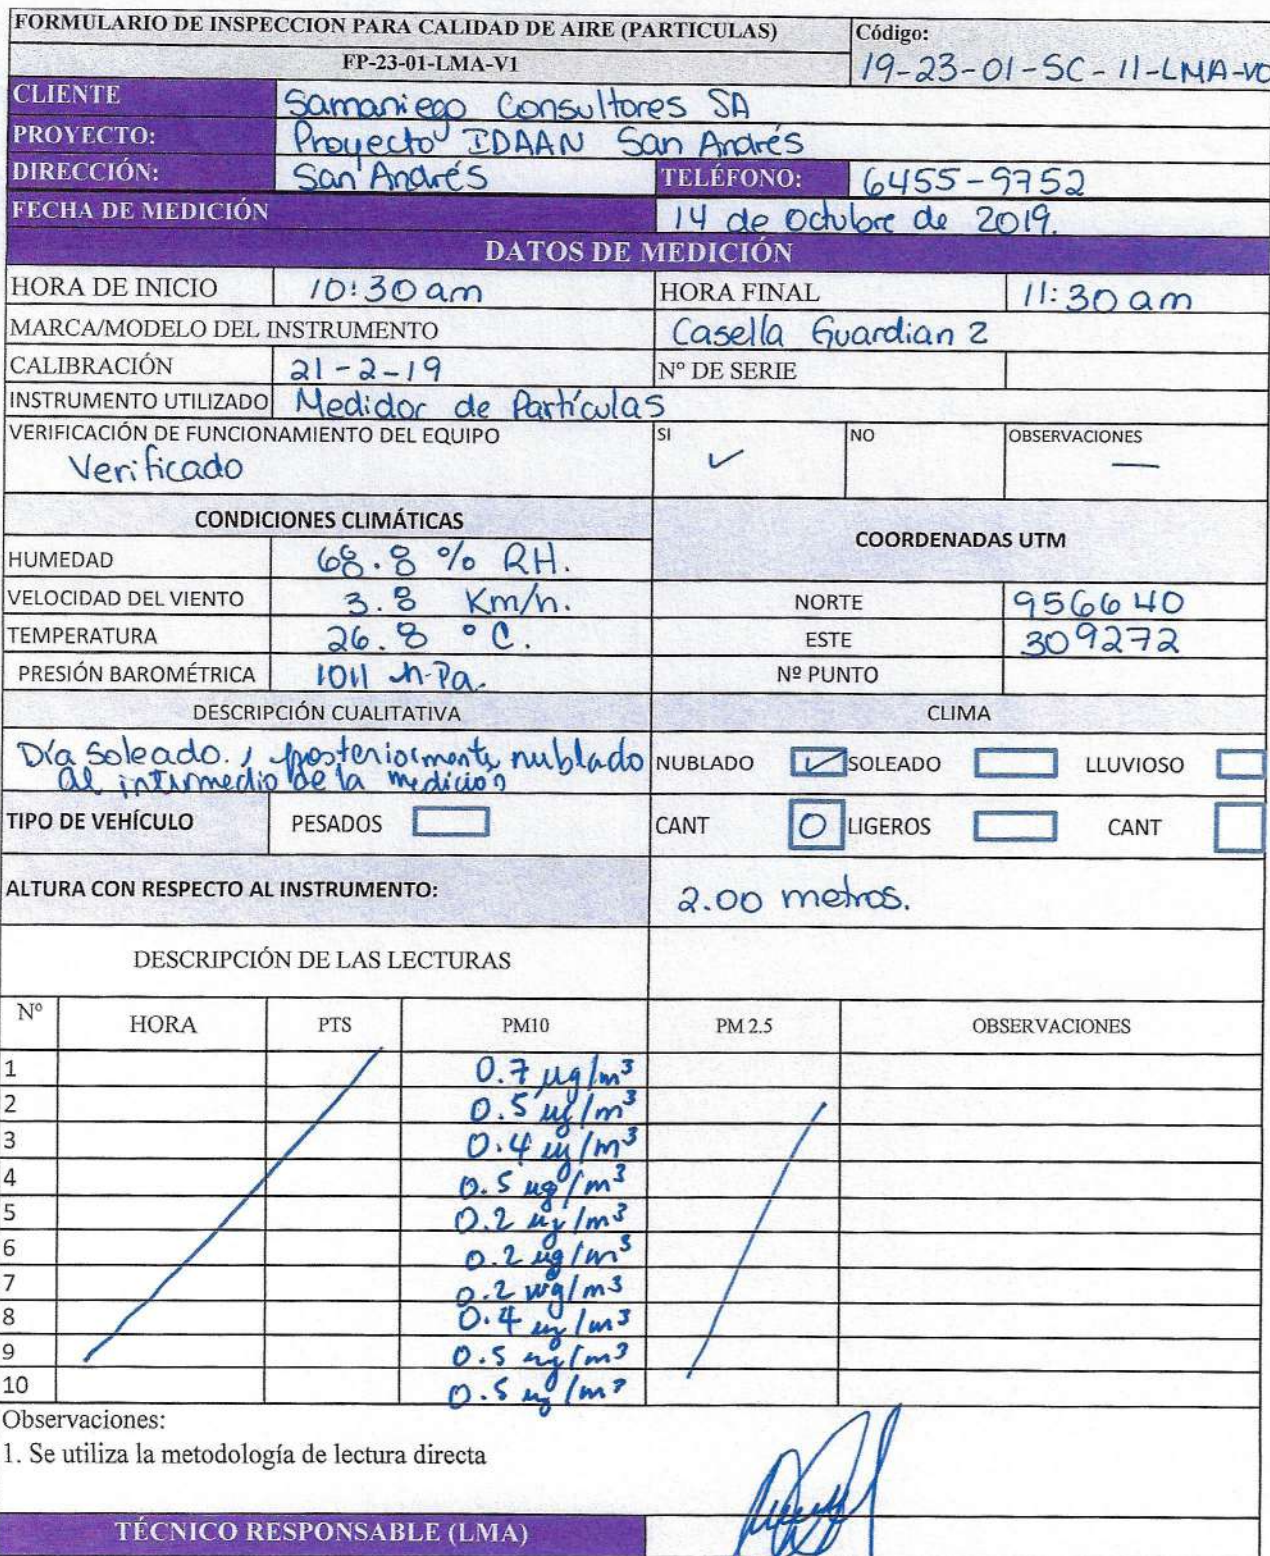 FORMULARIO DE INSPECCION PARA CALIDAD DE AIRE (PARTICULAS) Código:
FP-23-01-LMA-V1 19-23-01-SC-11-LMA-V0
CLIENTE Samaniego Consultores SA
PROYECTO: Proyecto IDAAN San Andrés
DIRECCIÓN: San Andrés TELÉFONO: 6455-9752
FECHA DE MEDICIÓN 14 de Octubre de 2019.
DATOS DE MEDICIÓN
HORA DE INICIO 10:30 am HORA FINAL 11:30 am
MARCA/MODELO DEL INSTRUMENTO Casella Guardian 2
CALIBRACIÓN 21-2-19 Nº DE SERIE
INSTRUMENTO UTILIZADO Medidor de Partículas
VERIFICACIÓN DE FUNCIONAMIENTO DEL EQUIPO SI ✓ NO OBSERVACIONES —
Verificado
CONDICIONES CLIMÁTICAS COORDENADAS UTM
HUMEDAD 68.8 % RH.
VELOCIDAD DEL VIENTO 3.8 Km/h. NORTE 956640
TEMPERATURA 26.8 °C. ESTE 309272
PRESIÓN BAROMÉTRICA 1011 h-Pa. Nº PUNTO
DESCRIPCIÓN CUALITATIVA CLIMA
Día Soleado, posteriormente nublado
al intermedio de la medición
NUBLADO ✓ SOLEADO LLUVIOSO
TIPO DE VEHÍCULO PESADOS CANT 0 LIGEROS CANT
ALTURA CON RESPECTO AL INSTRUMENTO: 2.00 metros.
DESCRIPCIÓN DE LAS LECTURAS
Nº HORA PTS PM10 PM 2.5 OBSERVACIONES
1 0.7 µg/m³
2 0.5 µg/m³
3 0.4 µg/m³
4 0.5 µg/m³
5 0.2 µg/m³
6 0.2 µg/m³
7 0.2 µg/m³
8 0.4 µg/m³
9 0.5 µg/m³
10 0.5 µg/m³
Observaciones:
1. Se utiliza la metodología de lectura directa
TÉCNICO RESPONSABLE (LMA)